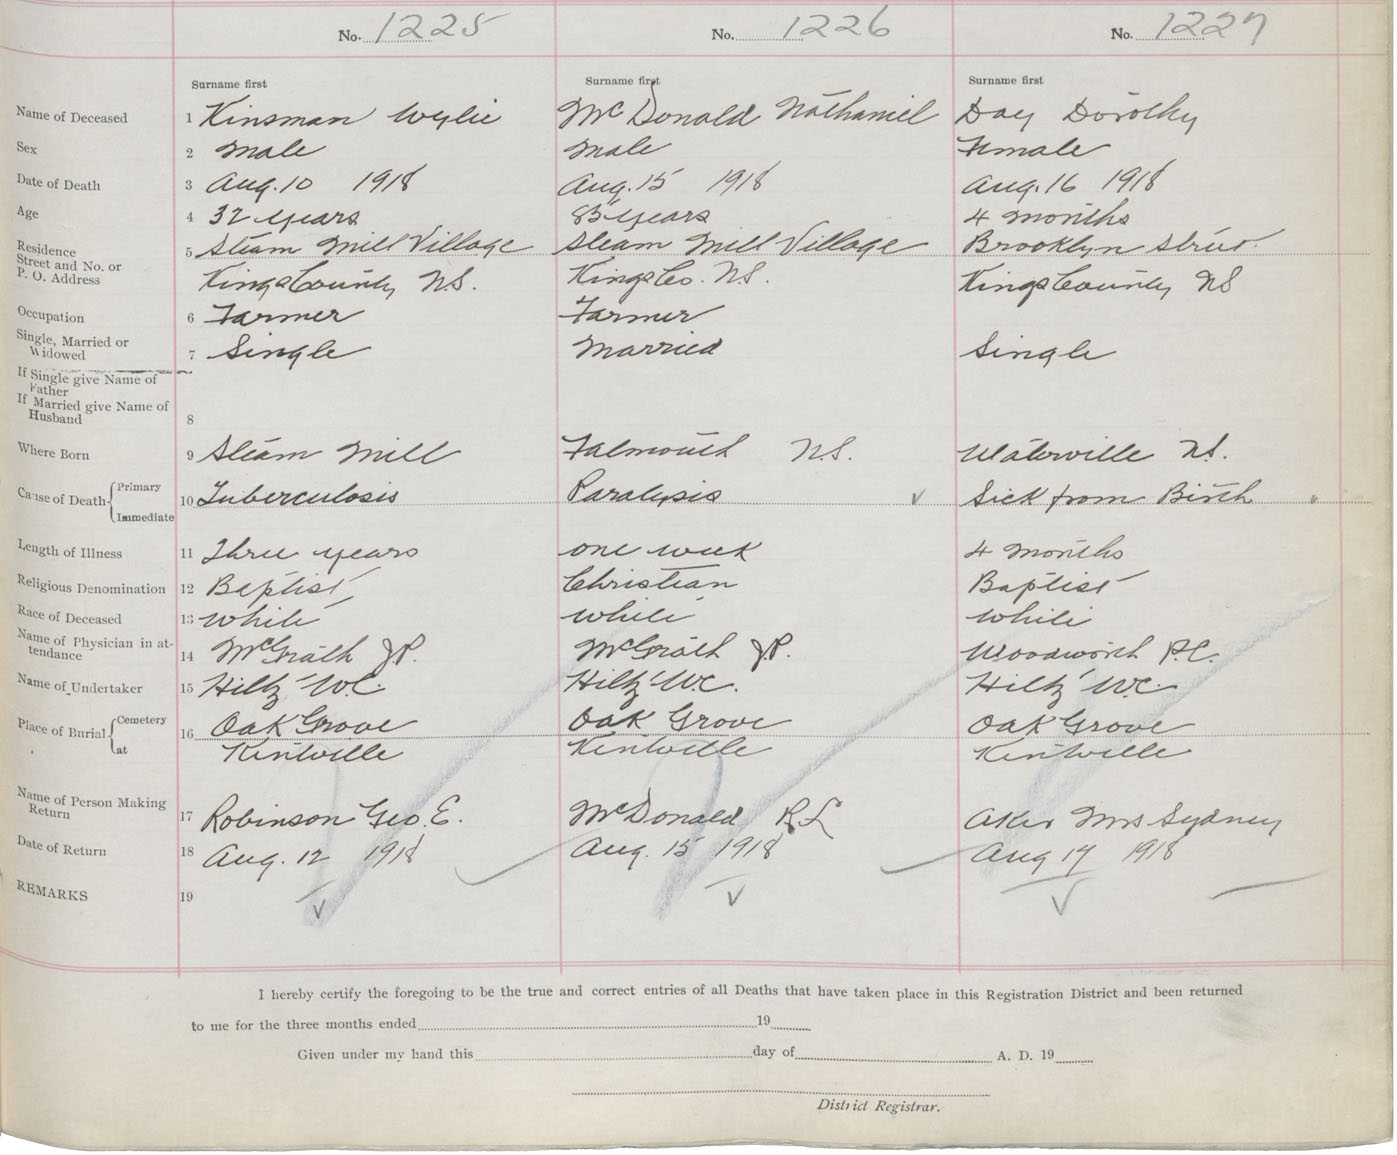 No. 1225 No. 1226 No. 1227
Surname first Surname first Surname first
Name of Deceased 1 Kinsman Wylie McDonald Nathaniel Day Dorothy
Sex 2 Male Male Female
Date of Death 3 Aug. 10 1918 Aug. 15 1918 Aug. 16 1918
Age 4 32 years 85 years 4 months
Residence Street and No. or P. O. Address 5 Steam Mill Village Steam Mill Village Brooklyn Street
Kings County N.S. Kings Co. N.S. Kings County NS
Occupation 6 Farmer Farmer
Single, Married or Widowed 7 Single Married Single
If Single give Name of Father
If Married give Name of Husband 8
Where Born 9 Steam Mill Falmouth N.S. Waterville N.S.
Cause of Death { Primary 10 Tuberculosis Paralysis Sick from Birth
Immediate
Length of Illness 11 Three years one week 4 months
Religious Denomination 12 Baptist Christian Baptist
Race of Deceased 13 White White White
Name of Physician in attendance 14 McGrath J.P. McGrath J.P. Woodworth P.C.
Name of Undertaker 15 Hiltz W.C. Hiltz W.C. Hiltz W.C.
Place of Burial { Cemetery 16 Oak Grove Oak Grove Oak Grove
at Kentville Kentville Kentville
Name of Person Making Return 17 Robinson Geo. E. McDonald R L Aker Mrs Sydney
Date of Return 18 Aug. 12 1918 Aug. 15 1918 Aug 17 1918
REMARKS 19
I hereby certify the foregoing to be the true and correct entries of all Deaths that have taken place in this Registration District and been returned
to me for the three months ended 19
Given under my hand this day of A. D. 19
District Registrar.